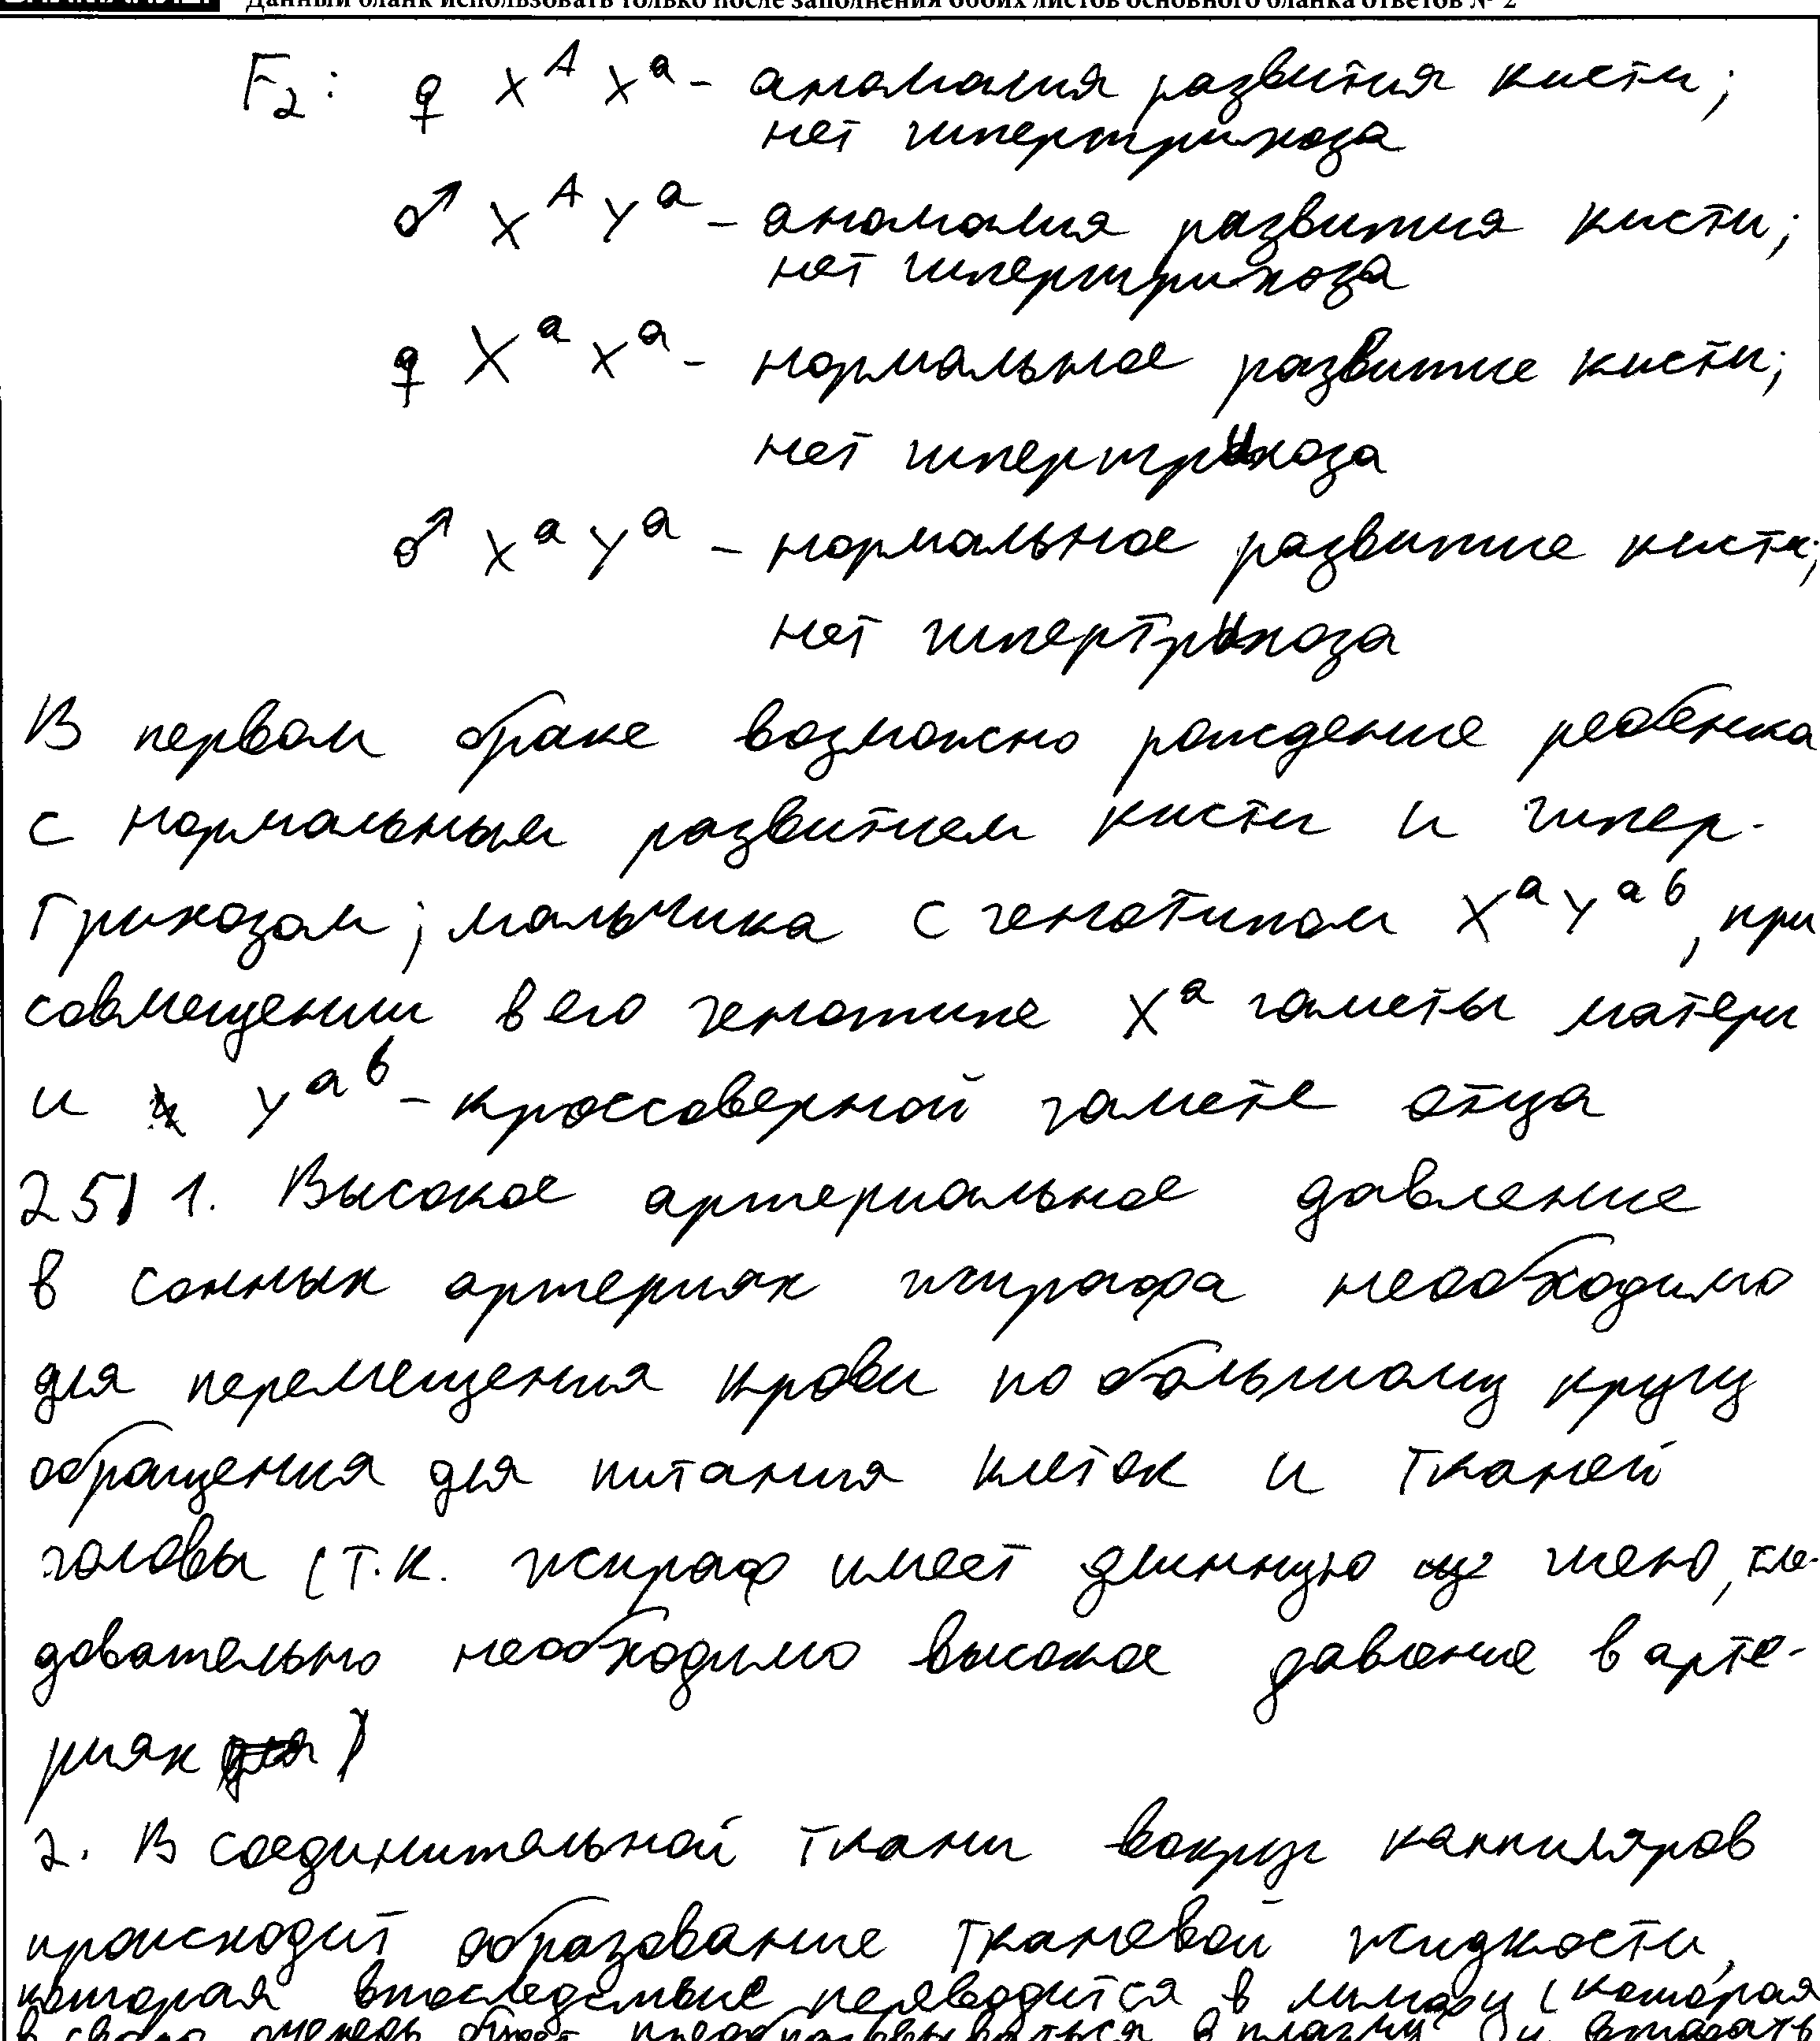 Данный бланк использовать только после заполнения обоих листов основного бланка ответов № 2
F₂: ♀ X^A X^a - аномалия развития кисти;
нет гипертрихоза
♂ X^A Y^a - аномалия развития кисти;
нет гипертрихоза
♀ X^a X^a - нормальное развитие кисти;
нет гипертрихоза
♂ X^a Y^a - нормальное развитие кисти;
нет гипертрихоза
В первом браке возможно рождение ребенка
с нормальным развитием кисти и гипер-
трихозом; мальчика с генотипом X^a Y^ab, при
совмещении в его генотипе X^a гаметы матери
и Y^ab - кроссоверной гамете отца
25) 1. Высокое артериальное давление
в сонных артериях жирафа необходимо
для перемещения крови по большому кругу
обращения для питания клеток и тканей
головы (т.к. жираф имеет длинную шею, сле-
довательно необходимо высокое давление в арте-
риях )
2. В соединительной ткани вокруг каппиляров
происходит образование тканевой жидкости,
которая впоследствие переводится в лимфу (которая
в свою очередь будет преобразовываться в плазму